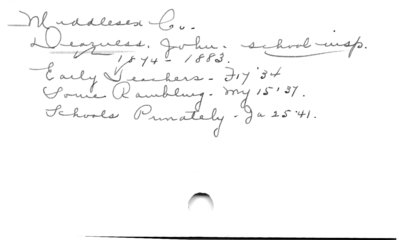 Middlesex Co.
Dearness, John - school insp.
1874 - 1883.
Early Teachers - F 17 '34
Some Rambling - My 15 '37.
Schools Privately - Ja 25 '41.